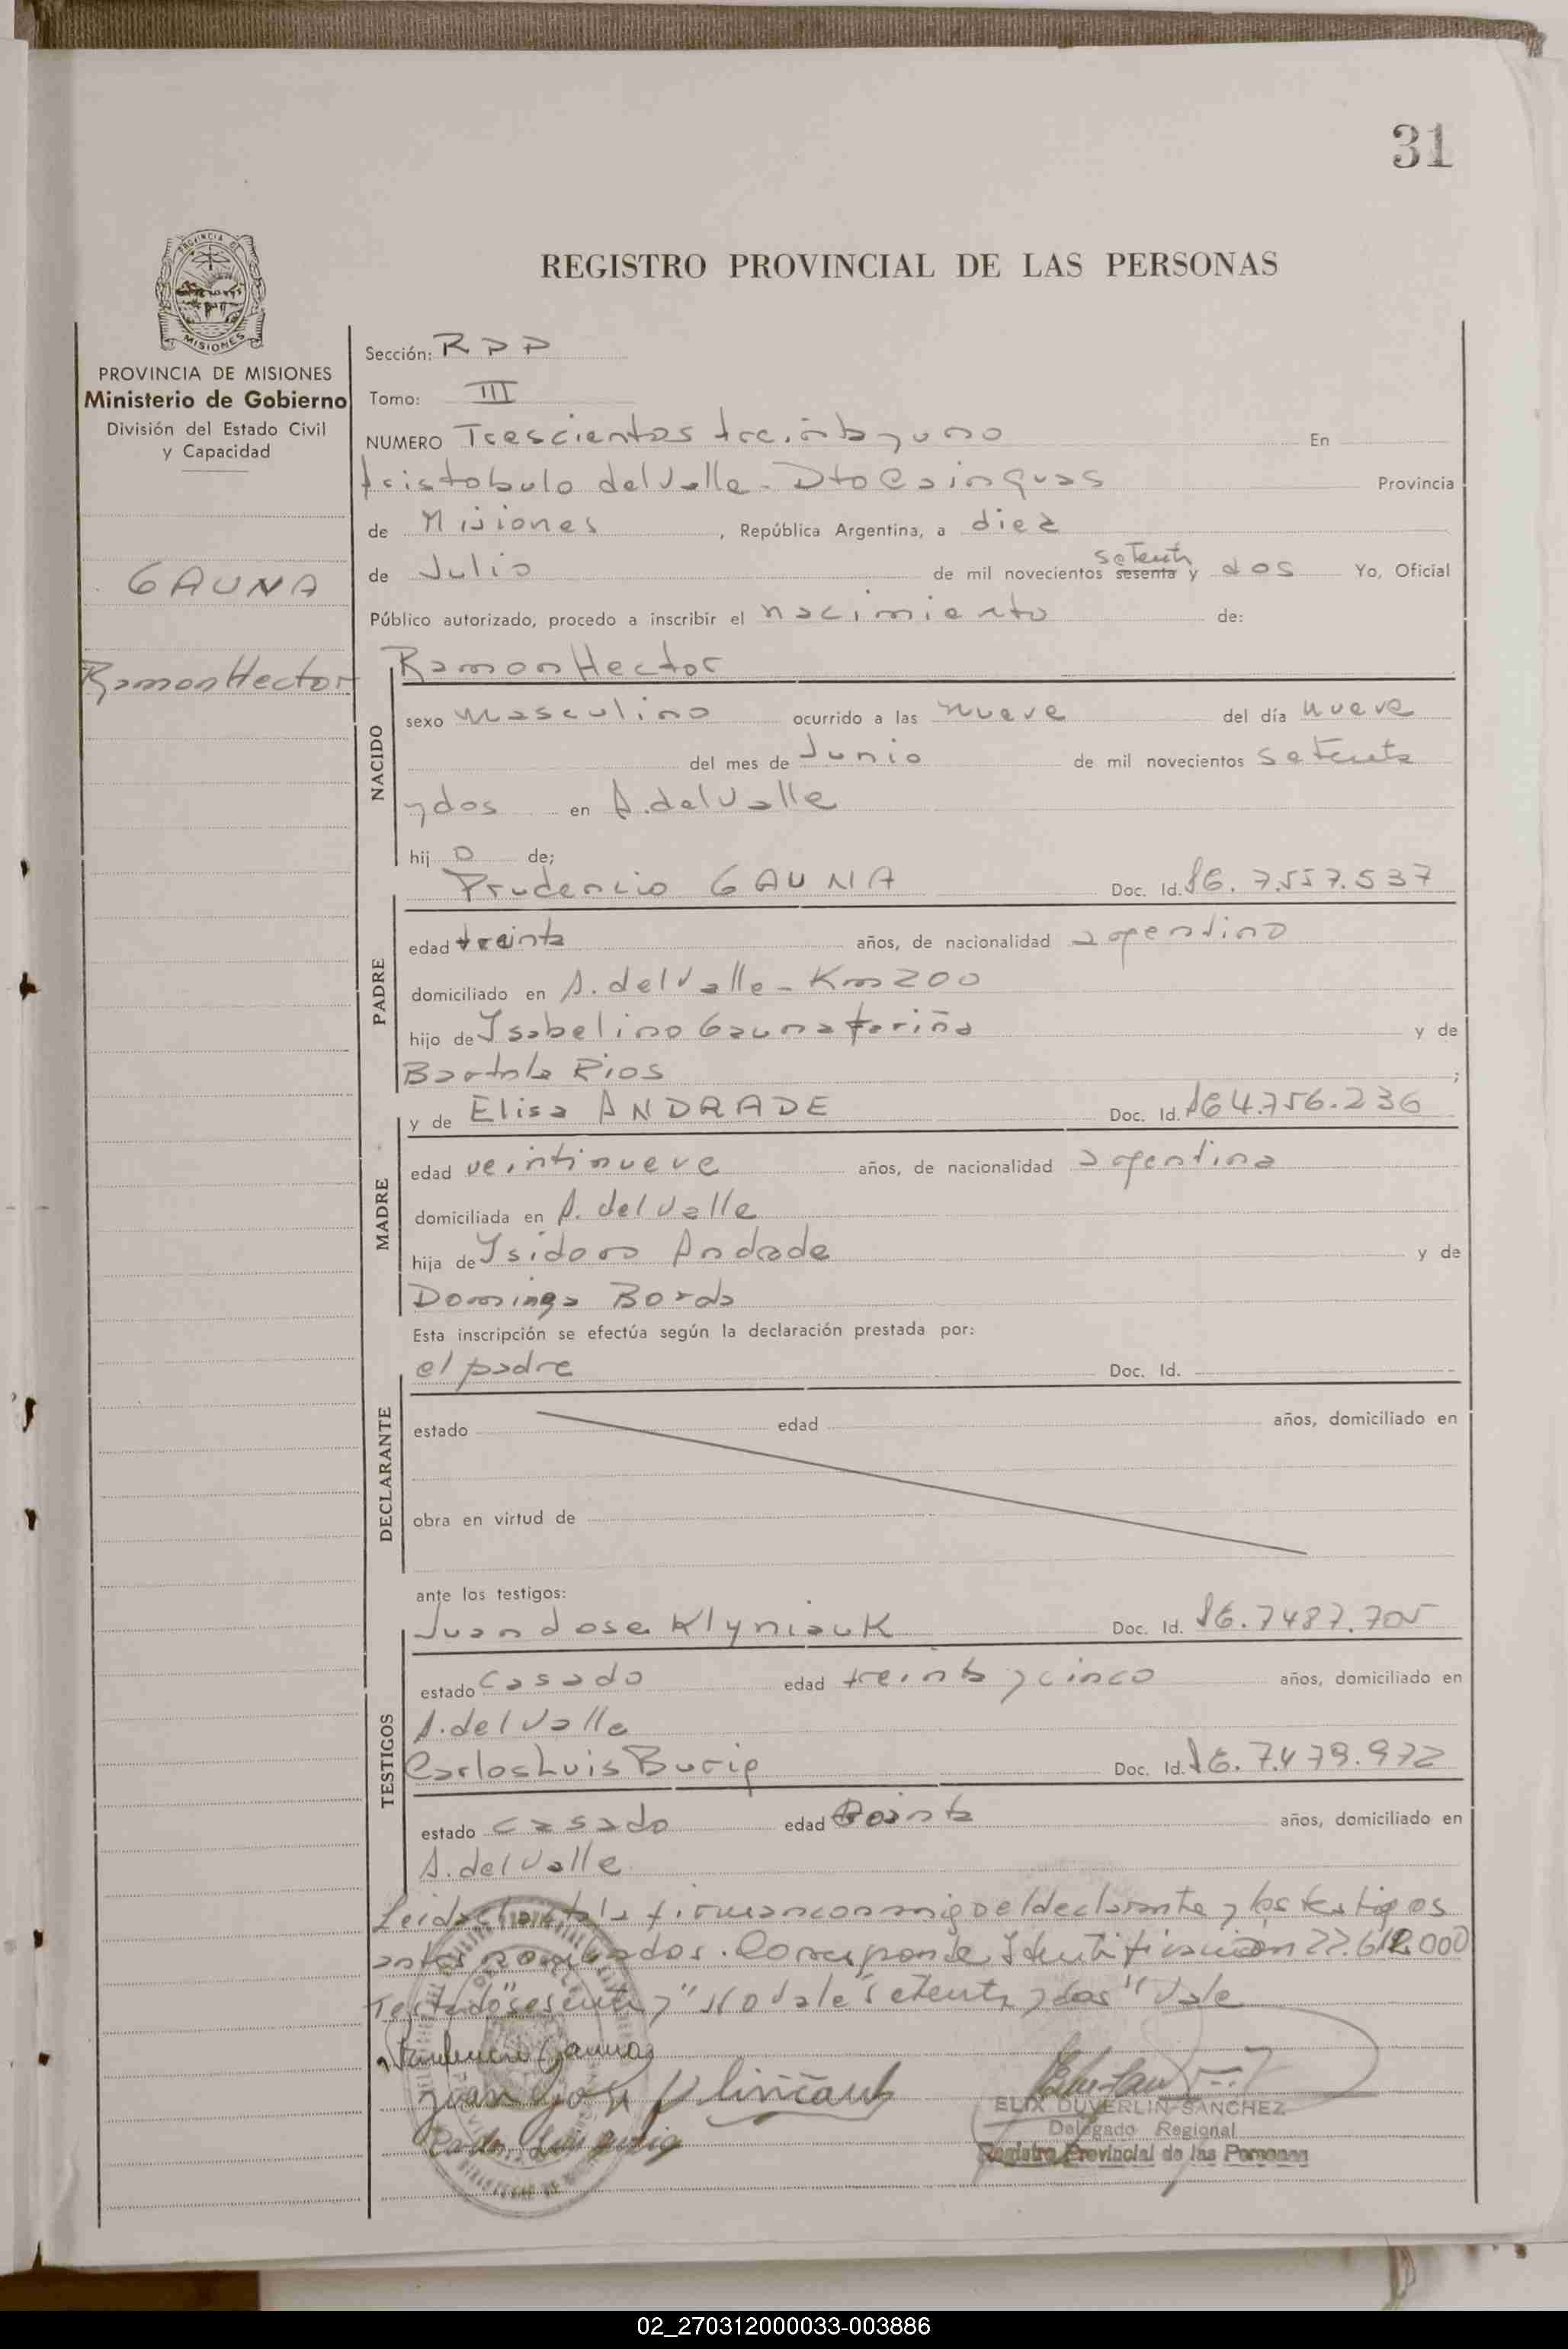 31
PROVINCIA DE
MISIONES
REGISTRO PROVINCIAL DE LAS PERSONAS
PROVINCIA DE MISIONES
Ministerio de Gobierno
División del Estado Civil
y Capacidad
GAUNA
Ramon Hector
Sección: RPP
Tomo: III
NUMERO Trescientos treinta y uno En
Aristobulo del Valle - Dto Cainguas Provincia
de Misiones, República Argentina, a diez
de Julio de mil novecientos sesenta setenta y dos Yo, Oficial
Público autorizado, procedo a inscribir el nacimiento de:
NACIDO
Ramon Hector
sexo masculino ocurrido a las nueve del día nueve
del mes de Junio de mil novecientos setenta
y dos en A. del Valle
hijo de;
PADRE
Prudencio GAUNA Doc. Id. 7.557.537
edad treinta años, de nacionalidad argentino
domiciliado en A. del Valle - Km 200
hijo de Ysabelino Gauna Fariña y de
Bartola Rios;
MADRE
y de Elisa ANDRADE Doc. Id. 4.756.236
edad veintinueve años, de nacionalidad argentina
domiciliada en A. del Valle
hija de Ysidoro Andrade y de
Dominga Borda
Esta inscripción se efectúa según la declaración prestada por:
DECLARANTE
el padre Doc. Id.
estado edad años, domiciliado en
obra en virtud de
ante los testigos:
TESTIGOS
Juan Jose Klyniauk Doc. Id. 7487.705
estado casado edad treinta y cinco años, domiciliado en
A. del Valle
Carlos Luis Doc. Id. 7.479.972
estado casado edad treinta años, domiciliado en
A. del Valle
Leida el acta la firman conmigo el declarante y los testigos
antes nombrados. Corresponde Identificacion 22.612.000
Testado "sesenta y" No vale "setenta y dos" Vale
Prudencio Gauna
Juan Jose
ELIX DUVERLIN SANCHEZ
Delegado Regional
Registro Provincial de las Personas
02_270312000033-003886